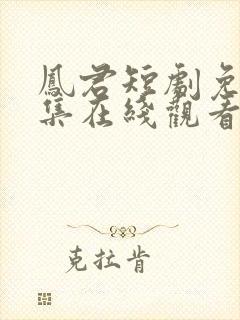 鳳君短劇免
集在綫觀看
克拉肯